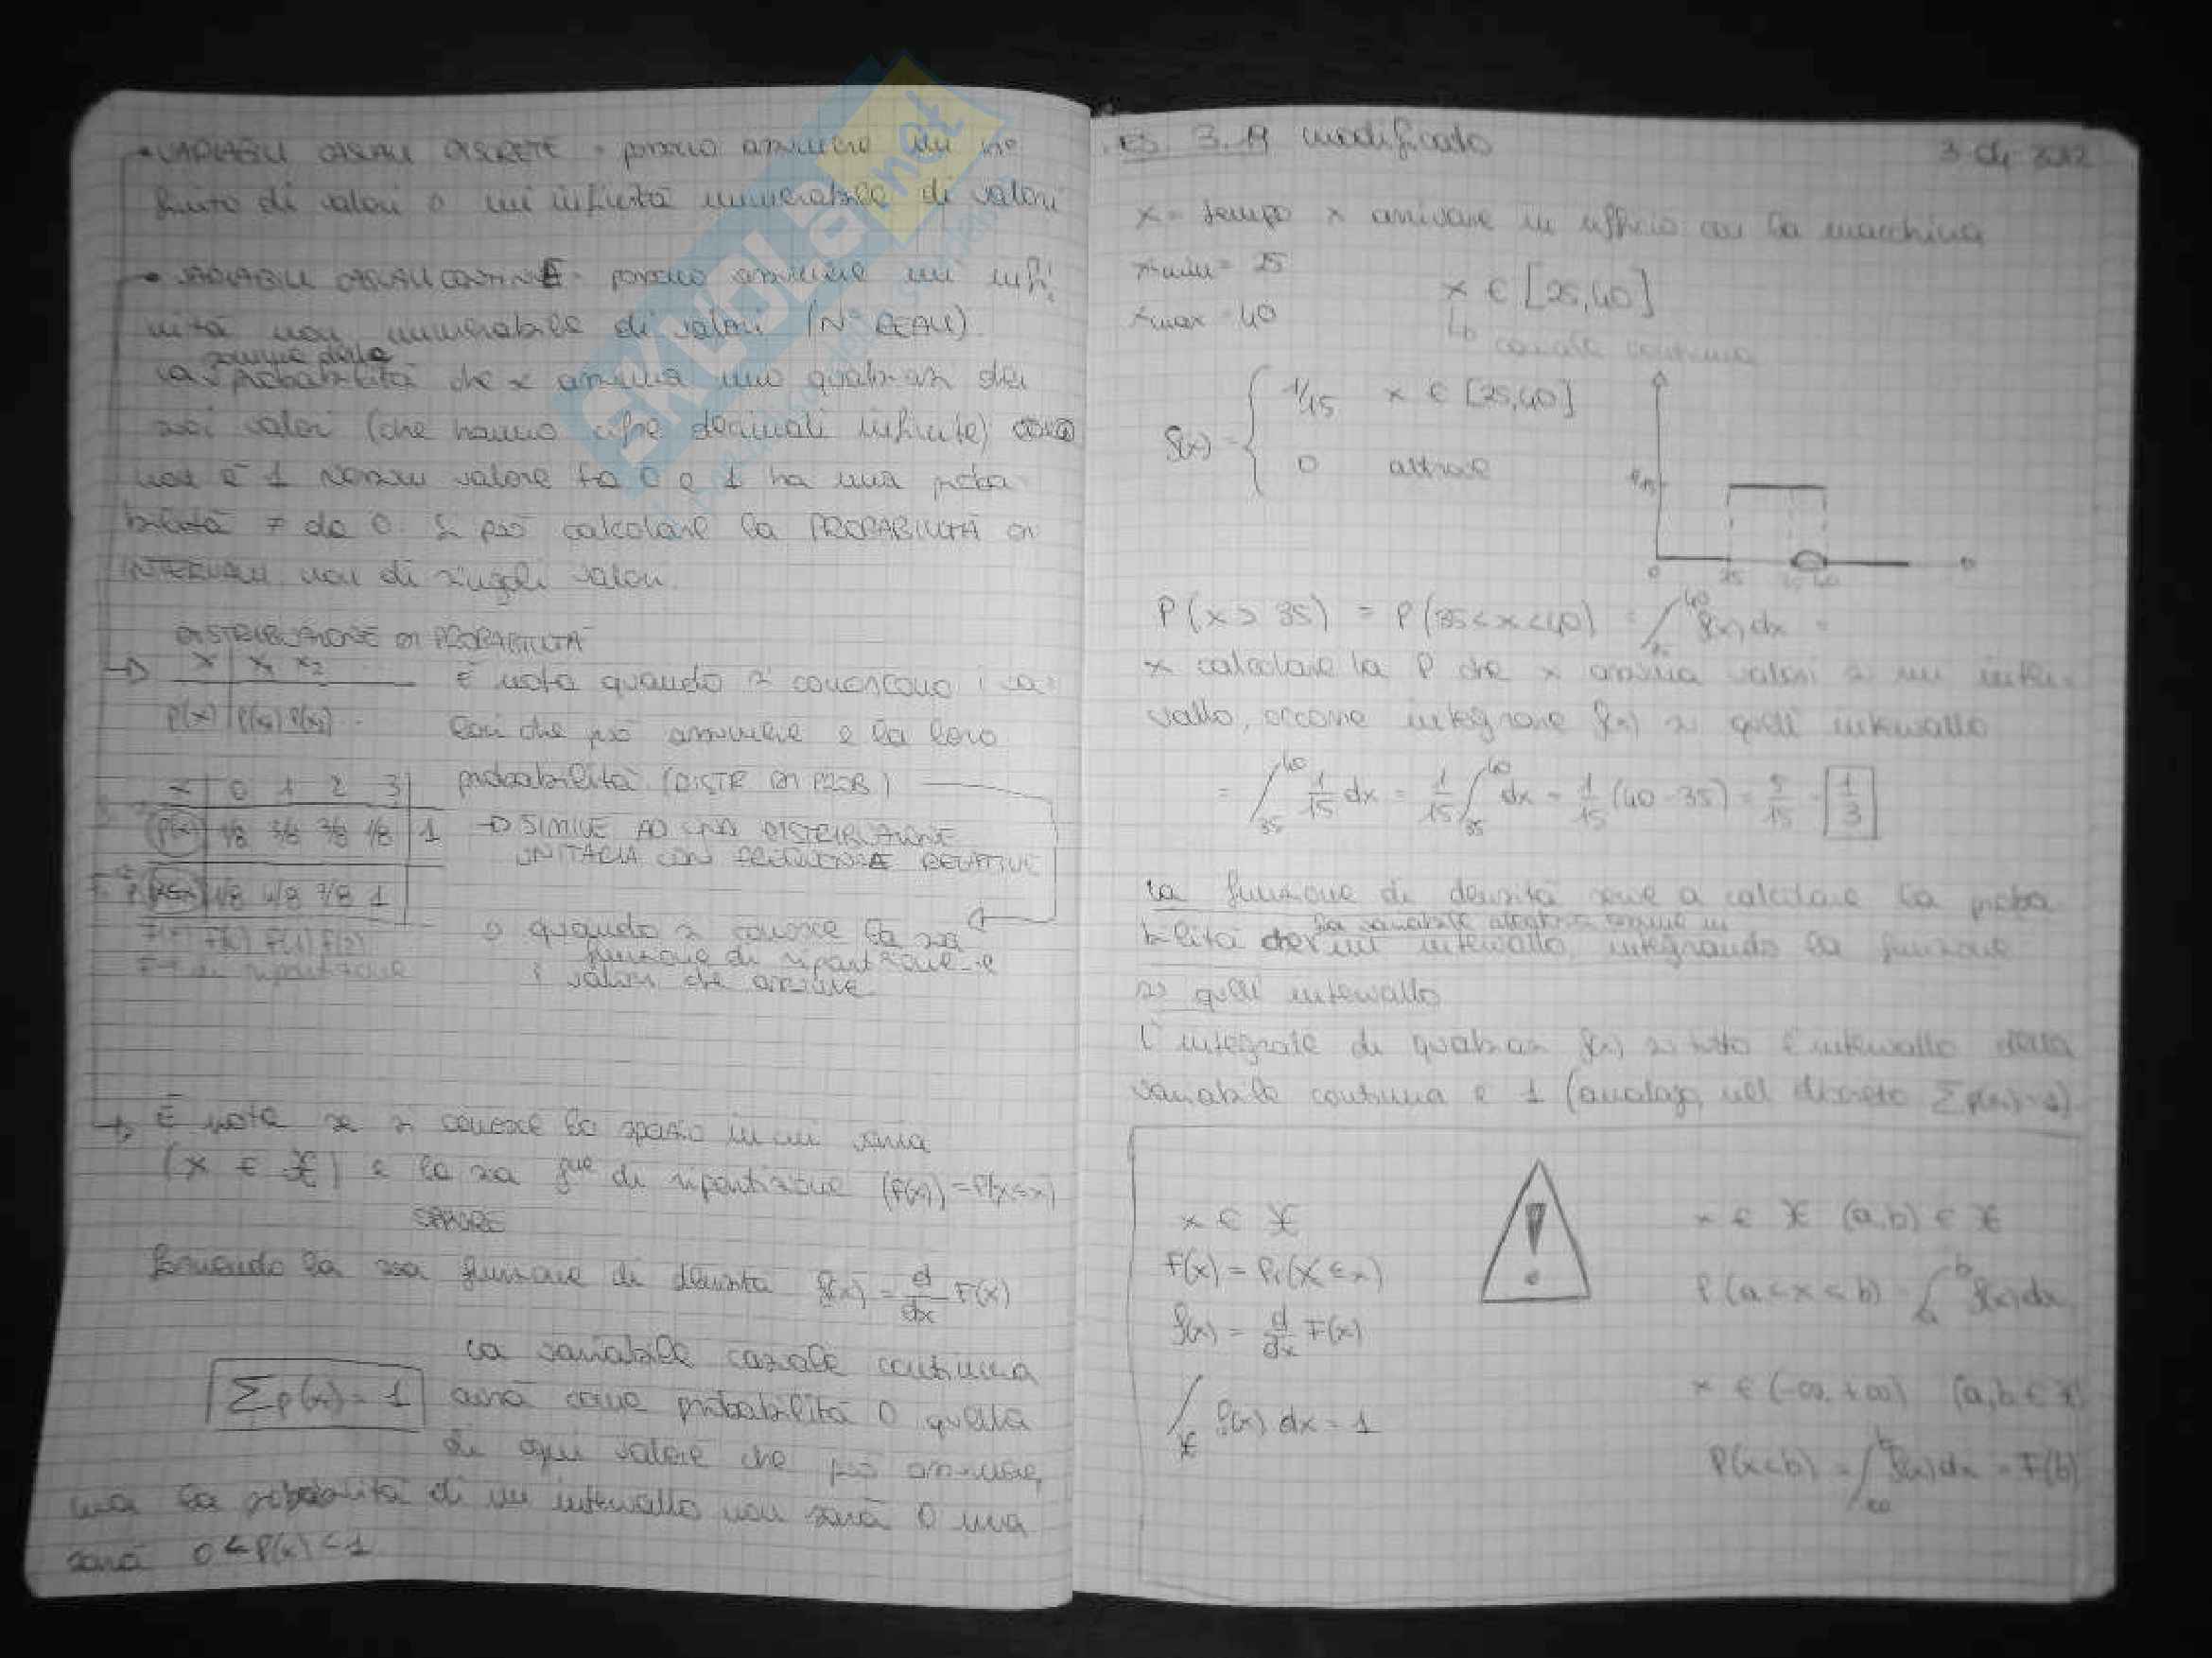 VARIABILI CASUALI DISCRETE - possono assumere un n°
finito di valori o un'infinità numerabile di valori
VARIABILI CASUALI CONTINUE - possono assumere un'infi
nità non numerabile di valori (N° REALI)
La probabilità che x assuma uno qualsiasi dei
suoi valori (che hanno cifre decimali infinite)
non è 1 Nessun valore tra 0 e 1 ha una proba
bilità ≠ da 0. Si può calcolare la PROBABILITÀ DI
INTERVALLI, non di singoli valori.
DISTRIBUZIONE DI PROBABILITÀ
x x₁ x₂
È nota quando si conoscono i va
P(x) P(x₁) P(x₂)
lori che può assumere e la loro
probabilità (DISTR DI PROB)
x 0 1 2 3
P(x) 1/8 3/8 3/8 1/8 1 → SIMILE AD UNA DISTRIBUZIONE
UNITARIA CON FREQUENZE RELATIVE
1/8 4/8 7/8 1
quando si conosce la sua
F(0) F(1) F(2)
funzione di ripartizione e
di ripartizione
i valori che assume
È nota se si conosce lo spazio in cui varia
(x ∈ X) e la sua f.ne di ripartizione (F(x)) = P(X≤x)
SAPERE
la sua funzione di densità f(x) = d/dx F(x)
La variabile casuale continua
Σp(x) = 1 avrà come probabilità 0 quella
di ogni valore che può assumere,
ma la probabilità di un intervallo non sarà 0 ma
sarà 0 < P(x) < 1
ES 3.19 modificato 3 dic 2012
x = tempo x arrivare in ufficio con la macchina
x min = 25
x ∈ [25,40]
x max = 40
↳ casuale continua
f(x) = { 1/15 x ∈ [25,40]
0 altrove
1/15
0 25 35 40
P(x > 35) = P(35 < x < 40) = ∫ 40 35 f(x) dx =
x calcolare la P che x assuma valori in un inter
vallo, occorre integrare f(x) su quell'intervallo
= ∫ 40 35 1/15 dx = 1/15 ∫ 40 35 dx = 1/15 (40 - 35) = 5/15 = 1/3
La funzione di densità serve a calcolare la proba
bilità che la variabile assuma valori in un intervallo, integrando la funzione
su quell'intervallo
L'integrale di qualsiasi f(x) su tutto l'intervallo della
variabile continua è 1 (analogo, nel discreto Σp(x)=1)
x ∈ X
!
x ∈ X (a,b) ∈ X
F(x) = Pr(X ≤ x)
P(a < x < b) = ∫ b a f(x) dx
f(x) = d/dx F(x)
x ∈ (-∞, +∞) (a,b ∈ X)
∫ X f(x) dx = 1
P(x<b) = ∫ b -∞ f(x) dx = F(b)
SKUOLA.net